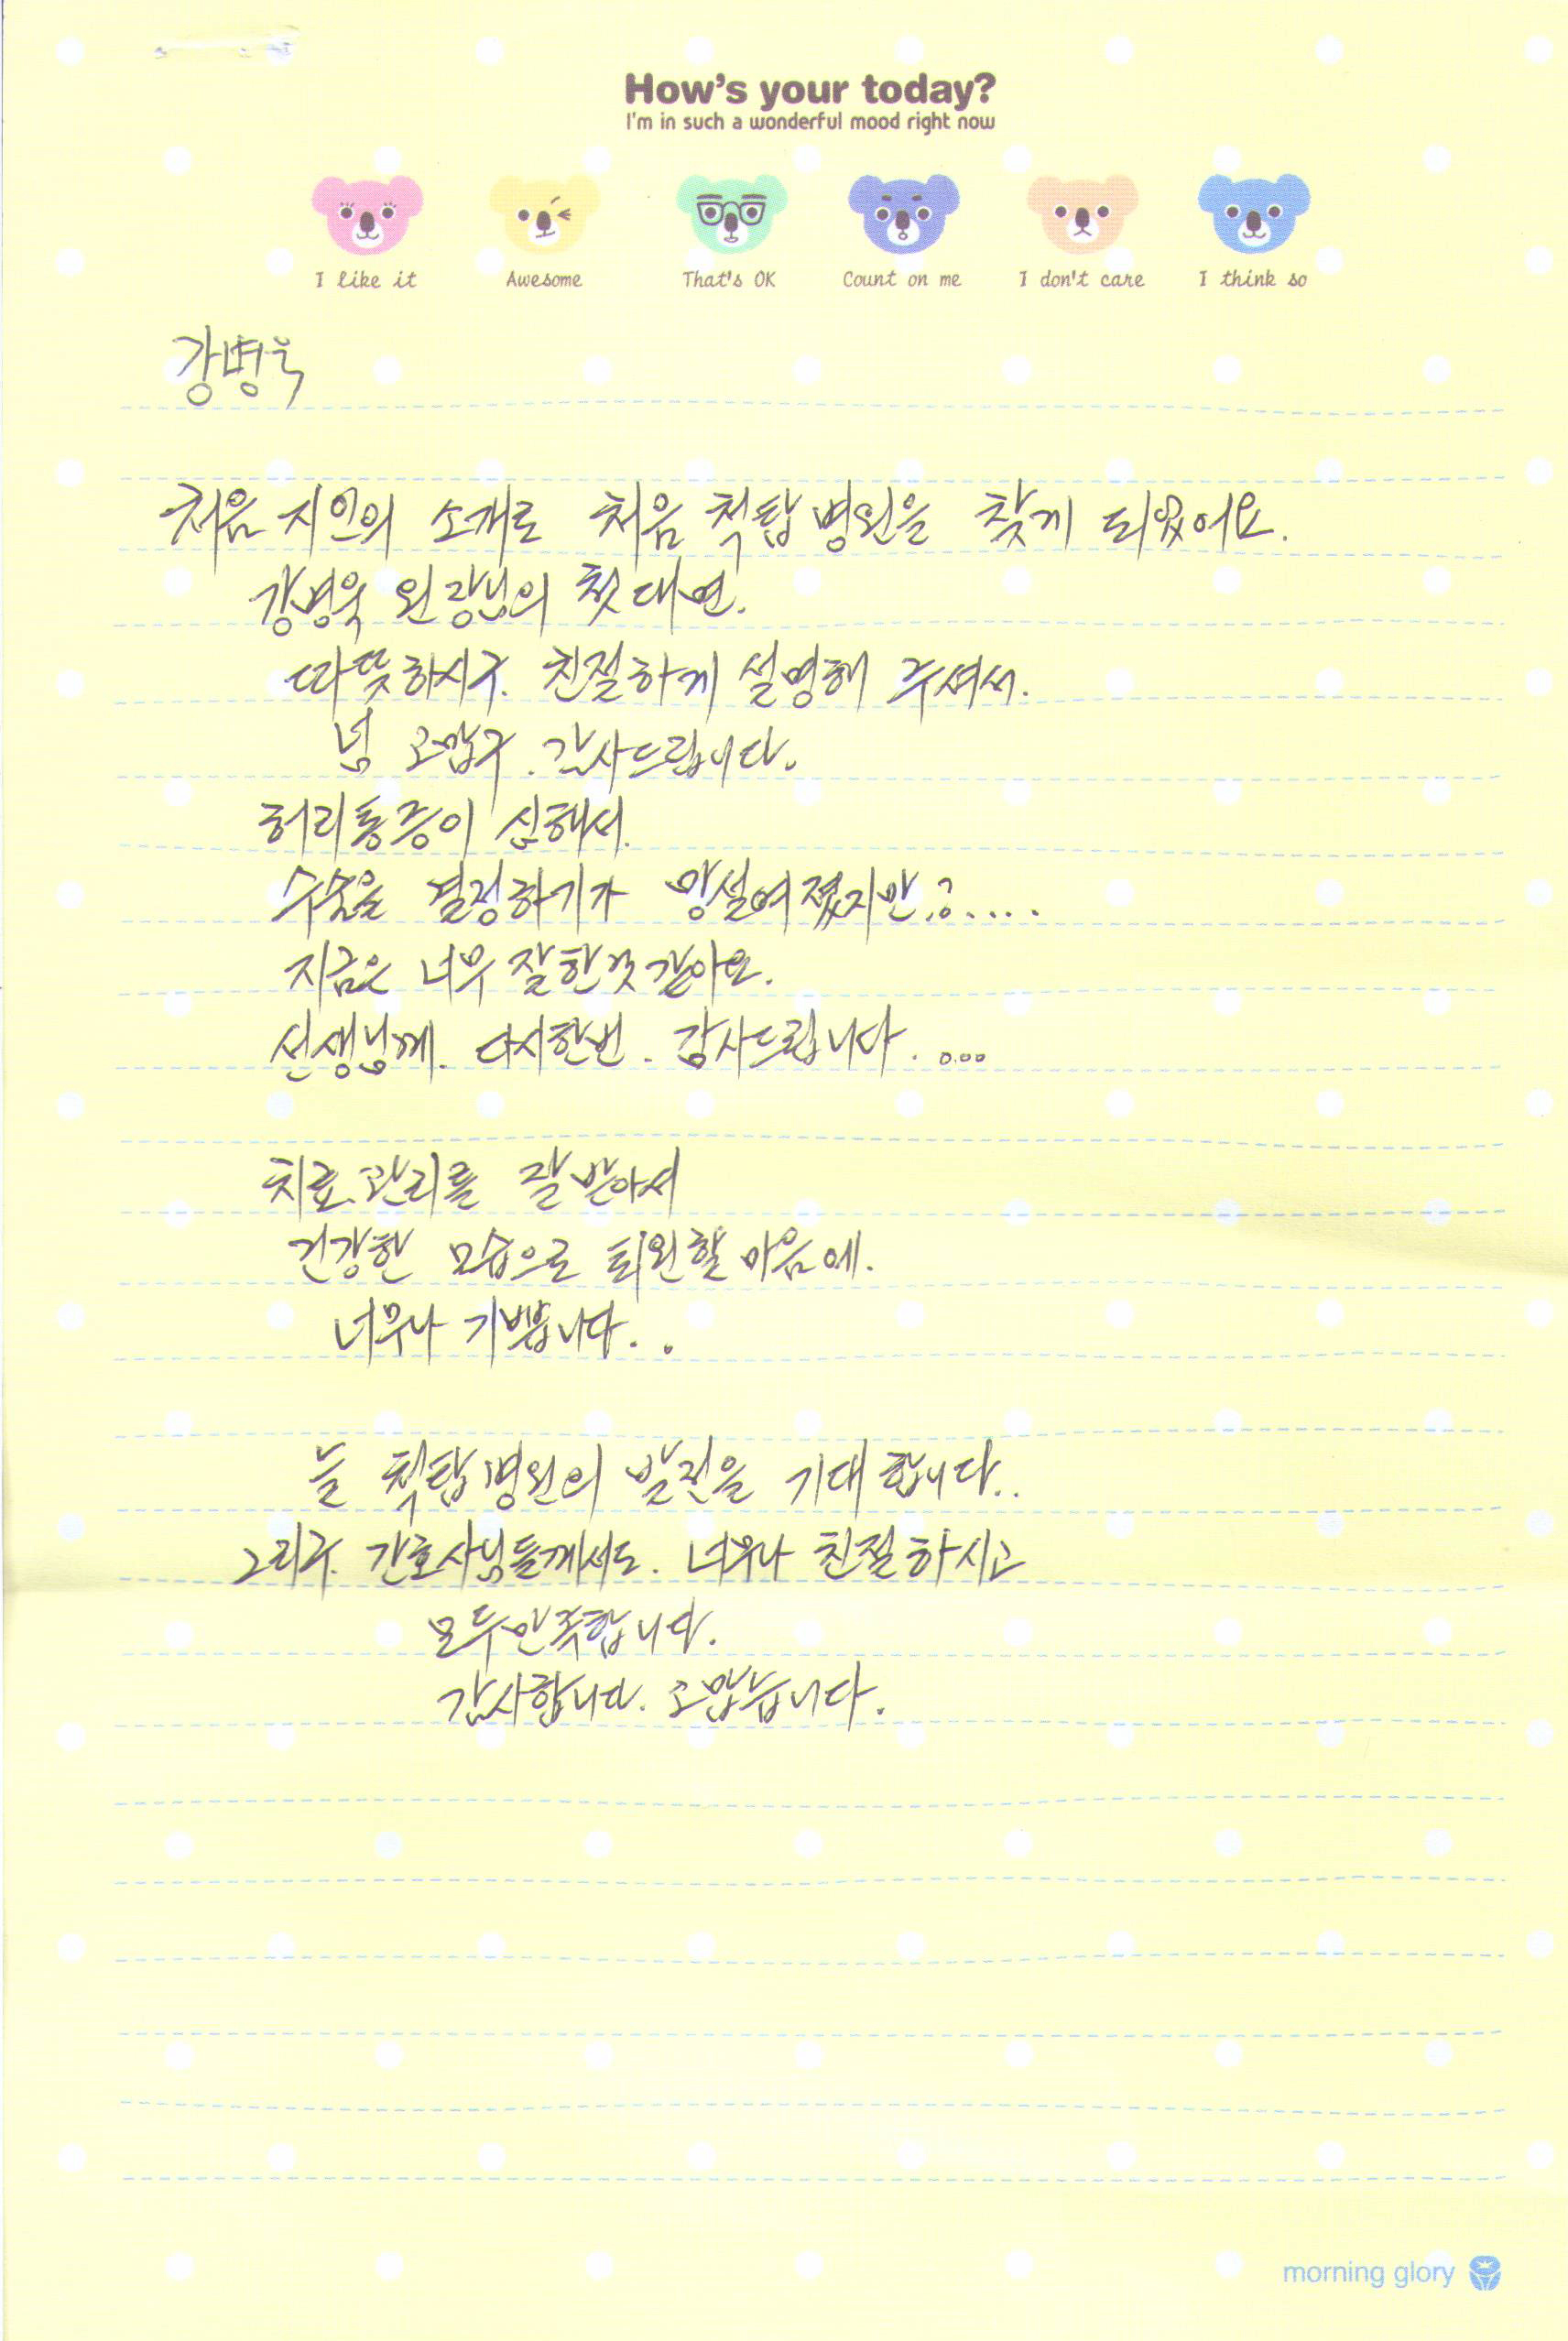 How's your today?
I'm in such a wonderful mood right now
I like it Awesome That's OK Count on me I don't care I think so
강병욱
처음 지인의 소개로 처음 척탑병원을 찾게 되었어요.
강병욱 원장님의 첫대면.
따뜻하시구. 친절하게 설명해 주셔서.
넘 고맙구. 감사드립니다.
허리통증이 심해서.
수술을 결정하기가 망설여졌지만?....
지금은 너무 잘한것 같아요.
선생님께. 다시한번. 감사드립니다. ....
치료.관리를 잘받아서
건강한 모습으로 퇴원할 마음에.
너무나 기쁩니다..
늘 척탑병원의 발전을 기대합니다..
그리구. 간호사님들께서도. 너무나 친절하시고
모두만족합니다.
감사합니다. 고맙습니다.
morning glory